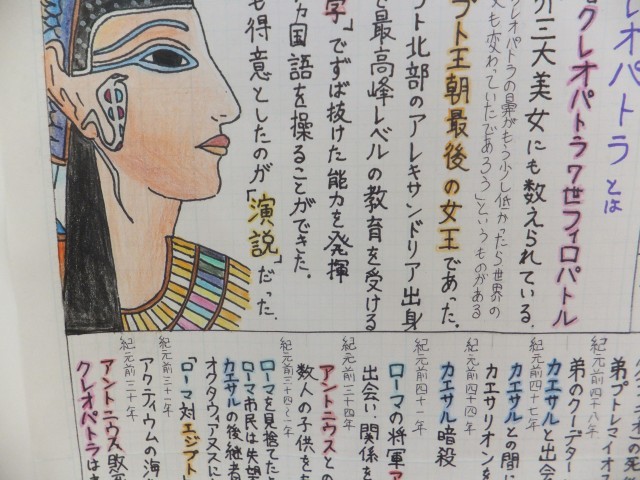 レオパトラとは
クレオパトラ7世フィロパトル
三大美女にも数えられている。
クレオパトラの鼻がもう少し低かったら世界の
も変わっていたであろう」というものがある
プト王朝最後の女王であった。
ト北部のアレキサンドリア出身
で最高峰レベルの教育を受ける
学」でずば抜けた能力を発揮
カ国語を操ることができた。
も得意としたのが「演説」だった。
紀元前四十八年
弟プトレマイオ
弟のクーデター
紀元前四十七年
カエサルと出会
カエサルとの間に
カエサリオンを
紀元前四十四年
カエサル暗殺
紀元前四十一年
ローマの将軍ア
出会い、関係を
紀元前三十四年
アントニウスとの
数人の子供をも
紀元前三十四~一年
ローマを見捨てた
ローマ市民は失望
カエサルの後継者
オクタウィアヌスに
「ローマ対エジプト
紀元前三十一年
アクティウムの海
紀元前三十年
アントニウス敗
クレオパトラは